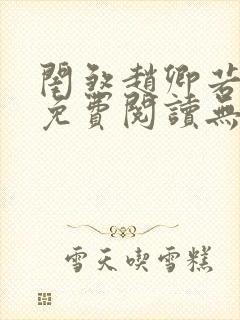 閨煞趙卿若
免費閱讀無
雪天喫雪糕